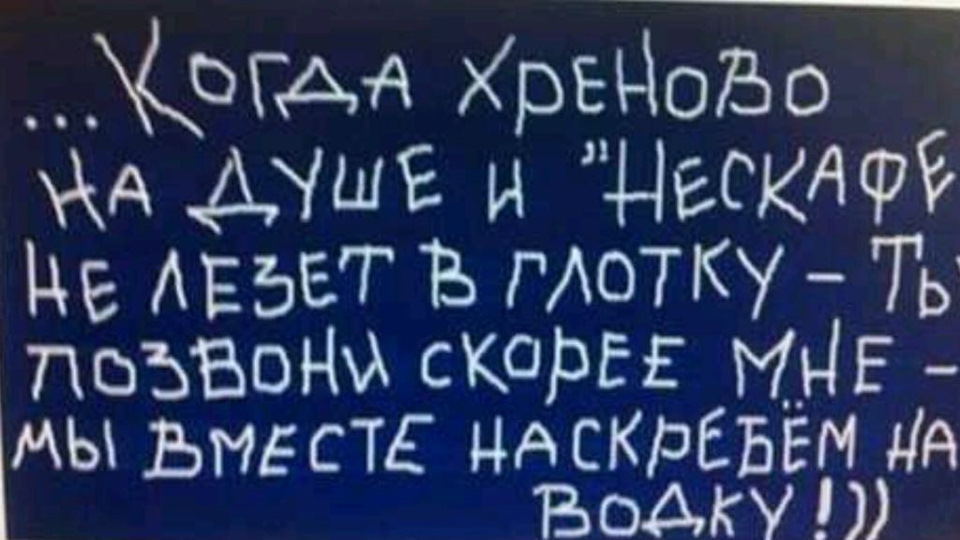 ...Когда хреново
на душе и "Нескафе
не лезет в глотку - Ты
позвони скорее мне -
мы вместе наскребём на
водку!))